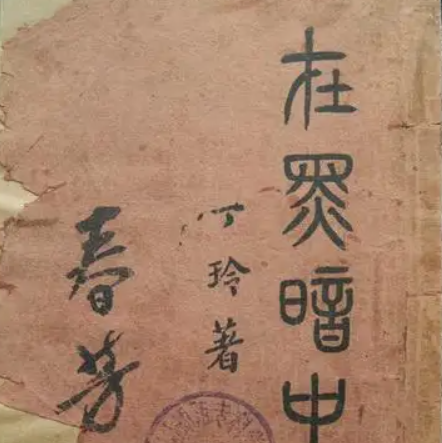 在黑暗中
丁玲著
春芳